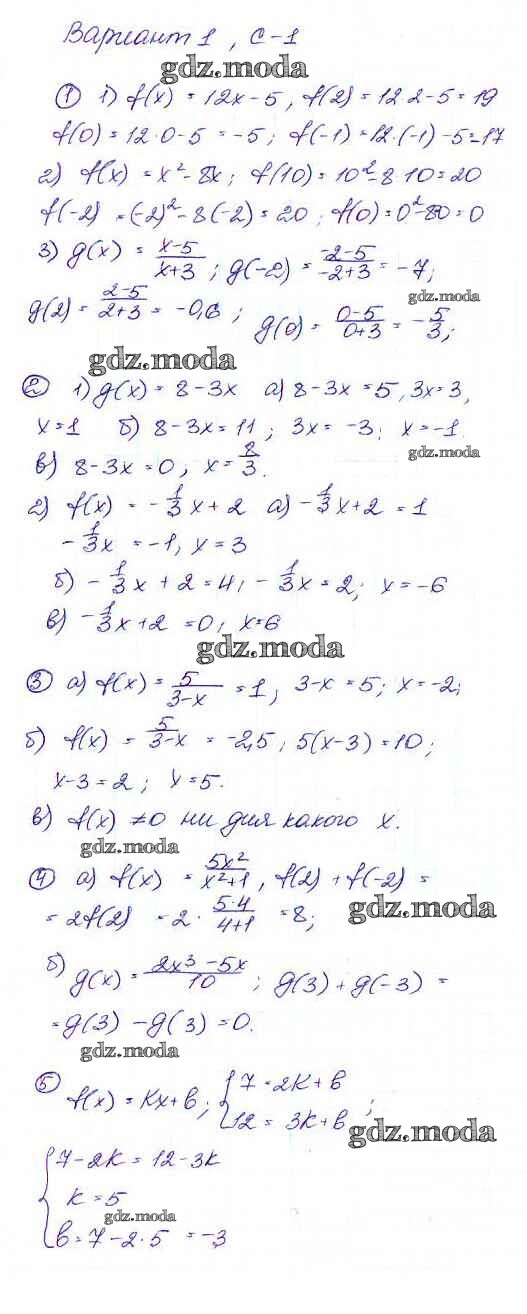 Вариант 1, С-1
gdz.moda
① 1) f(x) = 12x - 5, f(2) = 12·2-5 = 19
f(0) = 12·0-5 = -5; f(-1) = 12·(-1)-5=17
2) f(x) = x² - 8x; f(10) = 10²-8·10=20
f(-2) = (-2)² - 8(-2) = 20; f(0) = 0²-80 = 0
3) g(x) = (x-5)/(x+3); g(-2) = (-2-5)/(-2+3) = -7;
gdz.moda
g(2) = (2-5)/(2+3) = -0,6; g(0) = (0-5)/(0+3) = -5/3;
gdz.moda
② 1) g(x) = 8-3x а) 8-3x = 5, 3x = 3,
x = 1 б) 8-3x = 11; 3x = -3; x = -1.
gdz.moda
в) 8-3x = 0, x = 8/3.
2) f(x) = -1/3x + 2 а) -1/3x + 2 = 1
-1/3x = -1, x = 3
б) -1/3x + 2 = 4, -1/3x = 2; x = -6
в) -1/3x + 2 = 0, x = 6
gdz.moda
③ а) f(x) = 5/(3-x) = 1, 3-x = 5; x = -2;
б) f(x) = 5/(3-x) = -2,5, 5(x-3) = 10;
x-3 = 2; x = 5.
в) f(x) ≠ 0 ни для какого x.
gdz.moda
④ а) f(x) = 5x²/(x²+1), f(2) + f(-2) =
= 2f(2) = 2· (5·4)/(4+1) = 8;
gdz.moda
б) g(x) = (2x³-5x)/10; g(3) + g(-3) =
= g(3) - g(3) = 0.
gdz.moda
⑤ f(x) = kx+b; { 7 = 2k+b
12 = 3k+b;
gdz.moda
{ 7-2k = 12-3k
k = 5
gdz.moda
b = 7-2·5 = -3